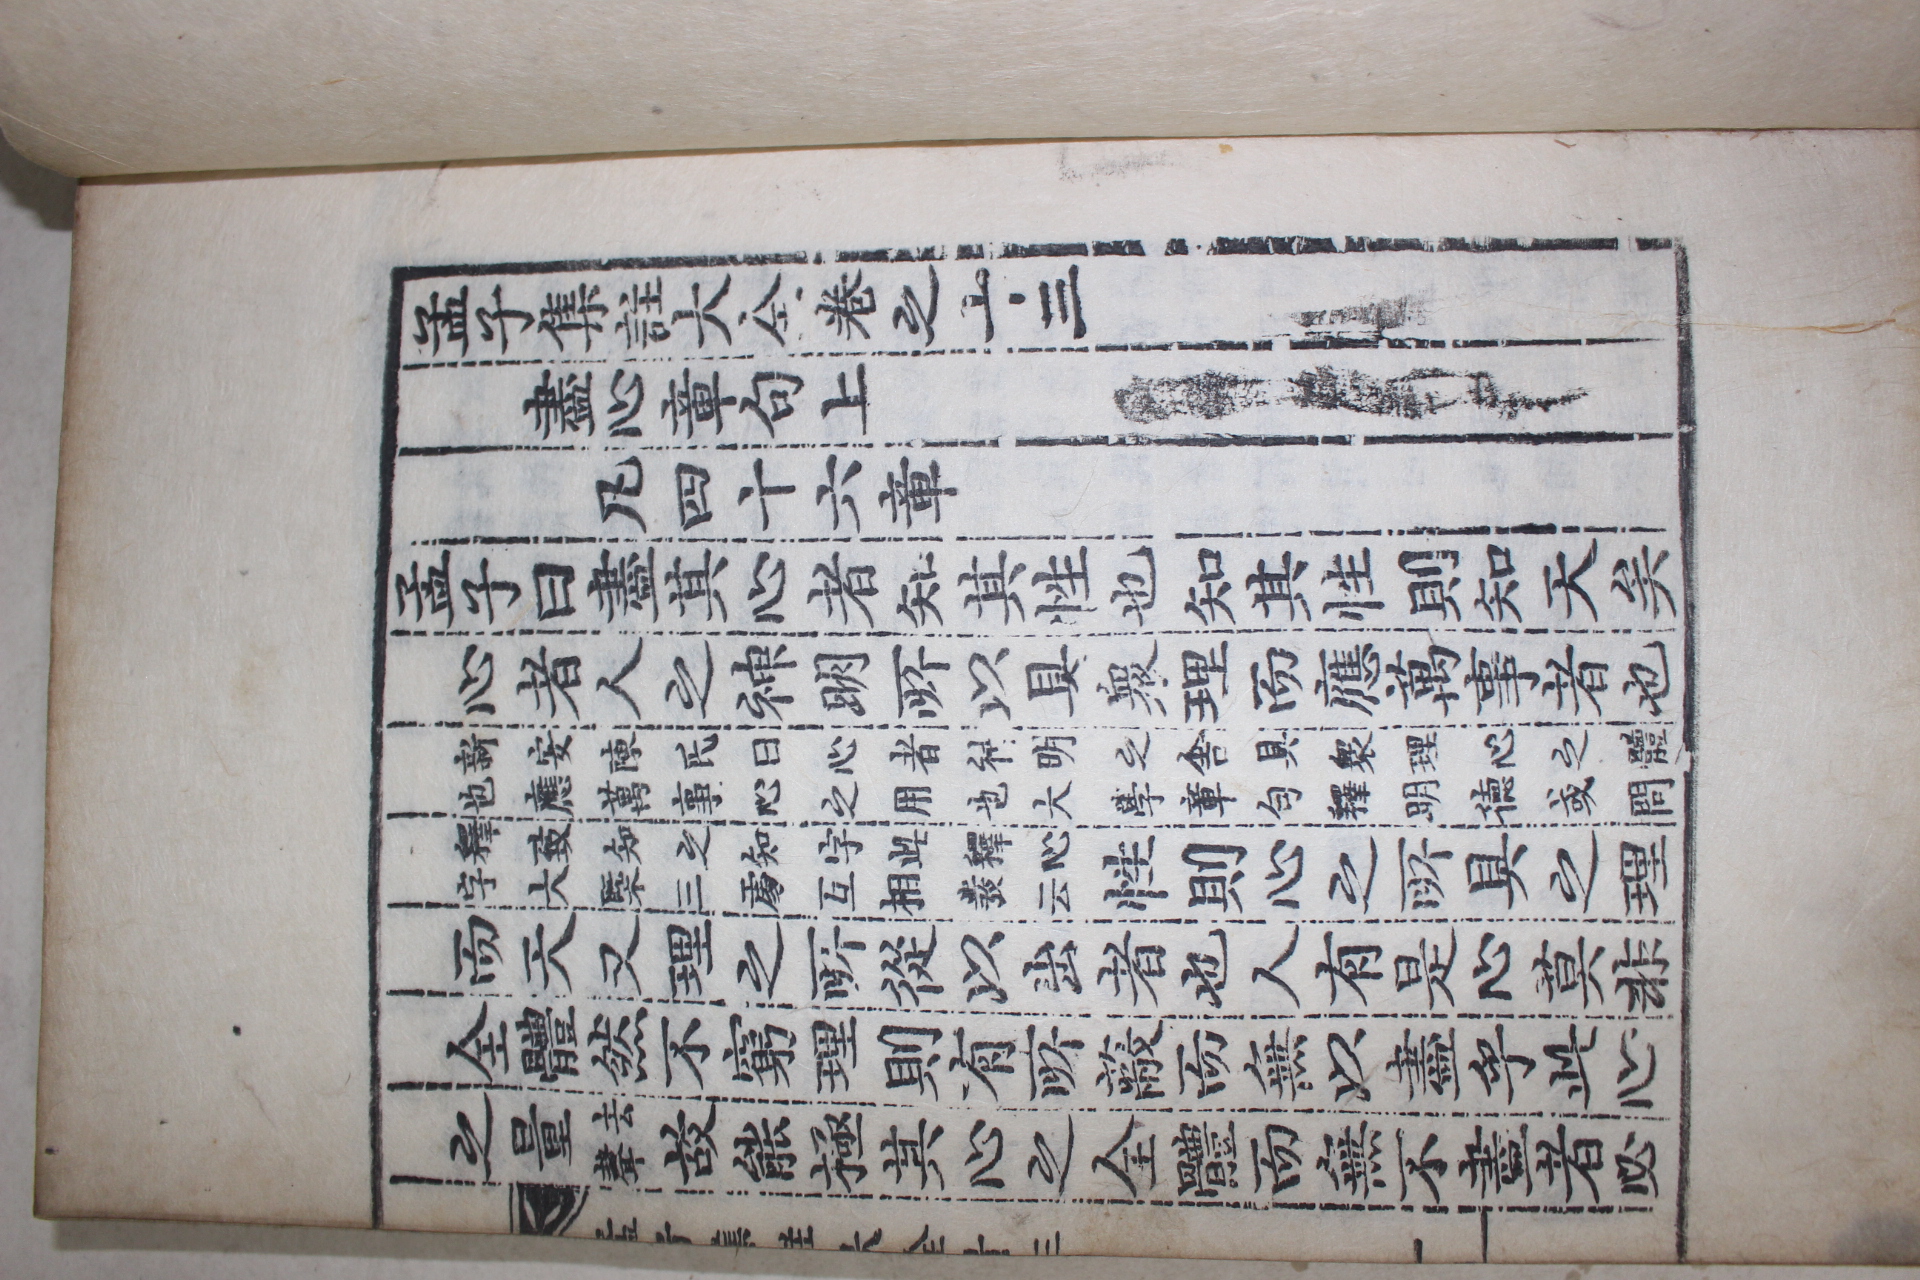 孟子集註大全卷之十三
盡心章句上
凡四十六章
孟子曰盡其心者知其性也知其性則知天矣
心者人之神明所以具衆理而應萬事者也
新安陳氏曰心者神明之舍具衆理心之體
也應萬事心之用也大學章句釋明德或問
釋致知之知字此釋心
字大槩三處互相發云
性則心之所具之理
而天又理之所從以出者也人有是心莫非
全體然不窮理則有所蔽而無以盡乎此心
之量去聲故能極其心之全體而無不盡者必
孟子集註大全十三
一